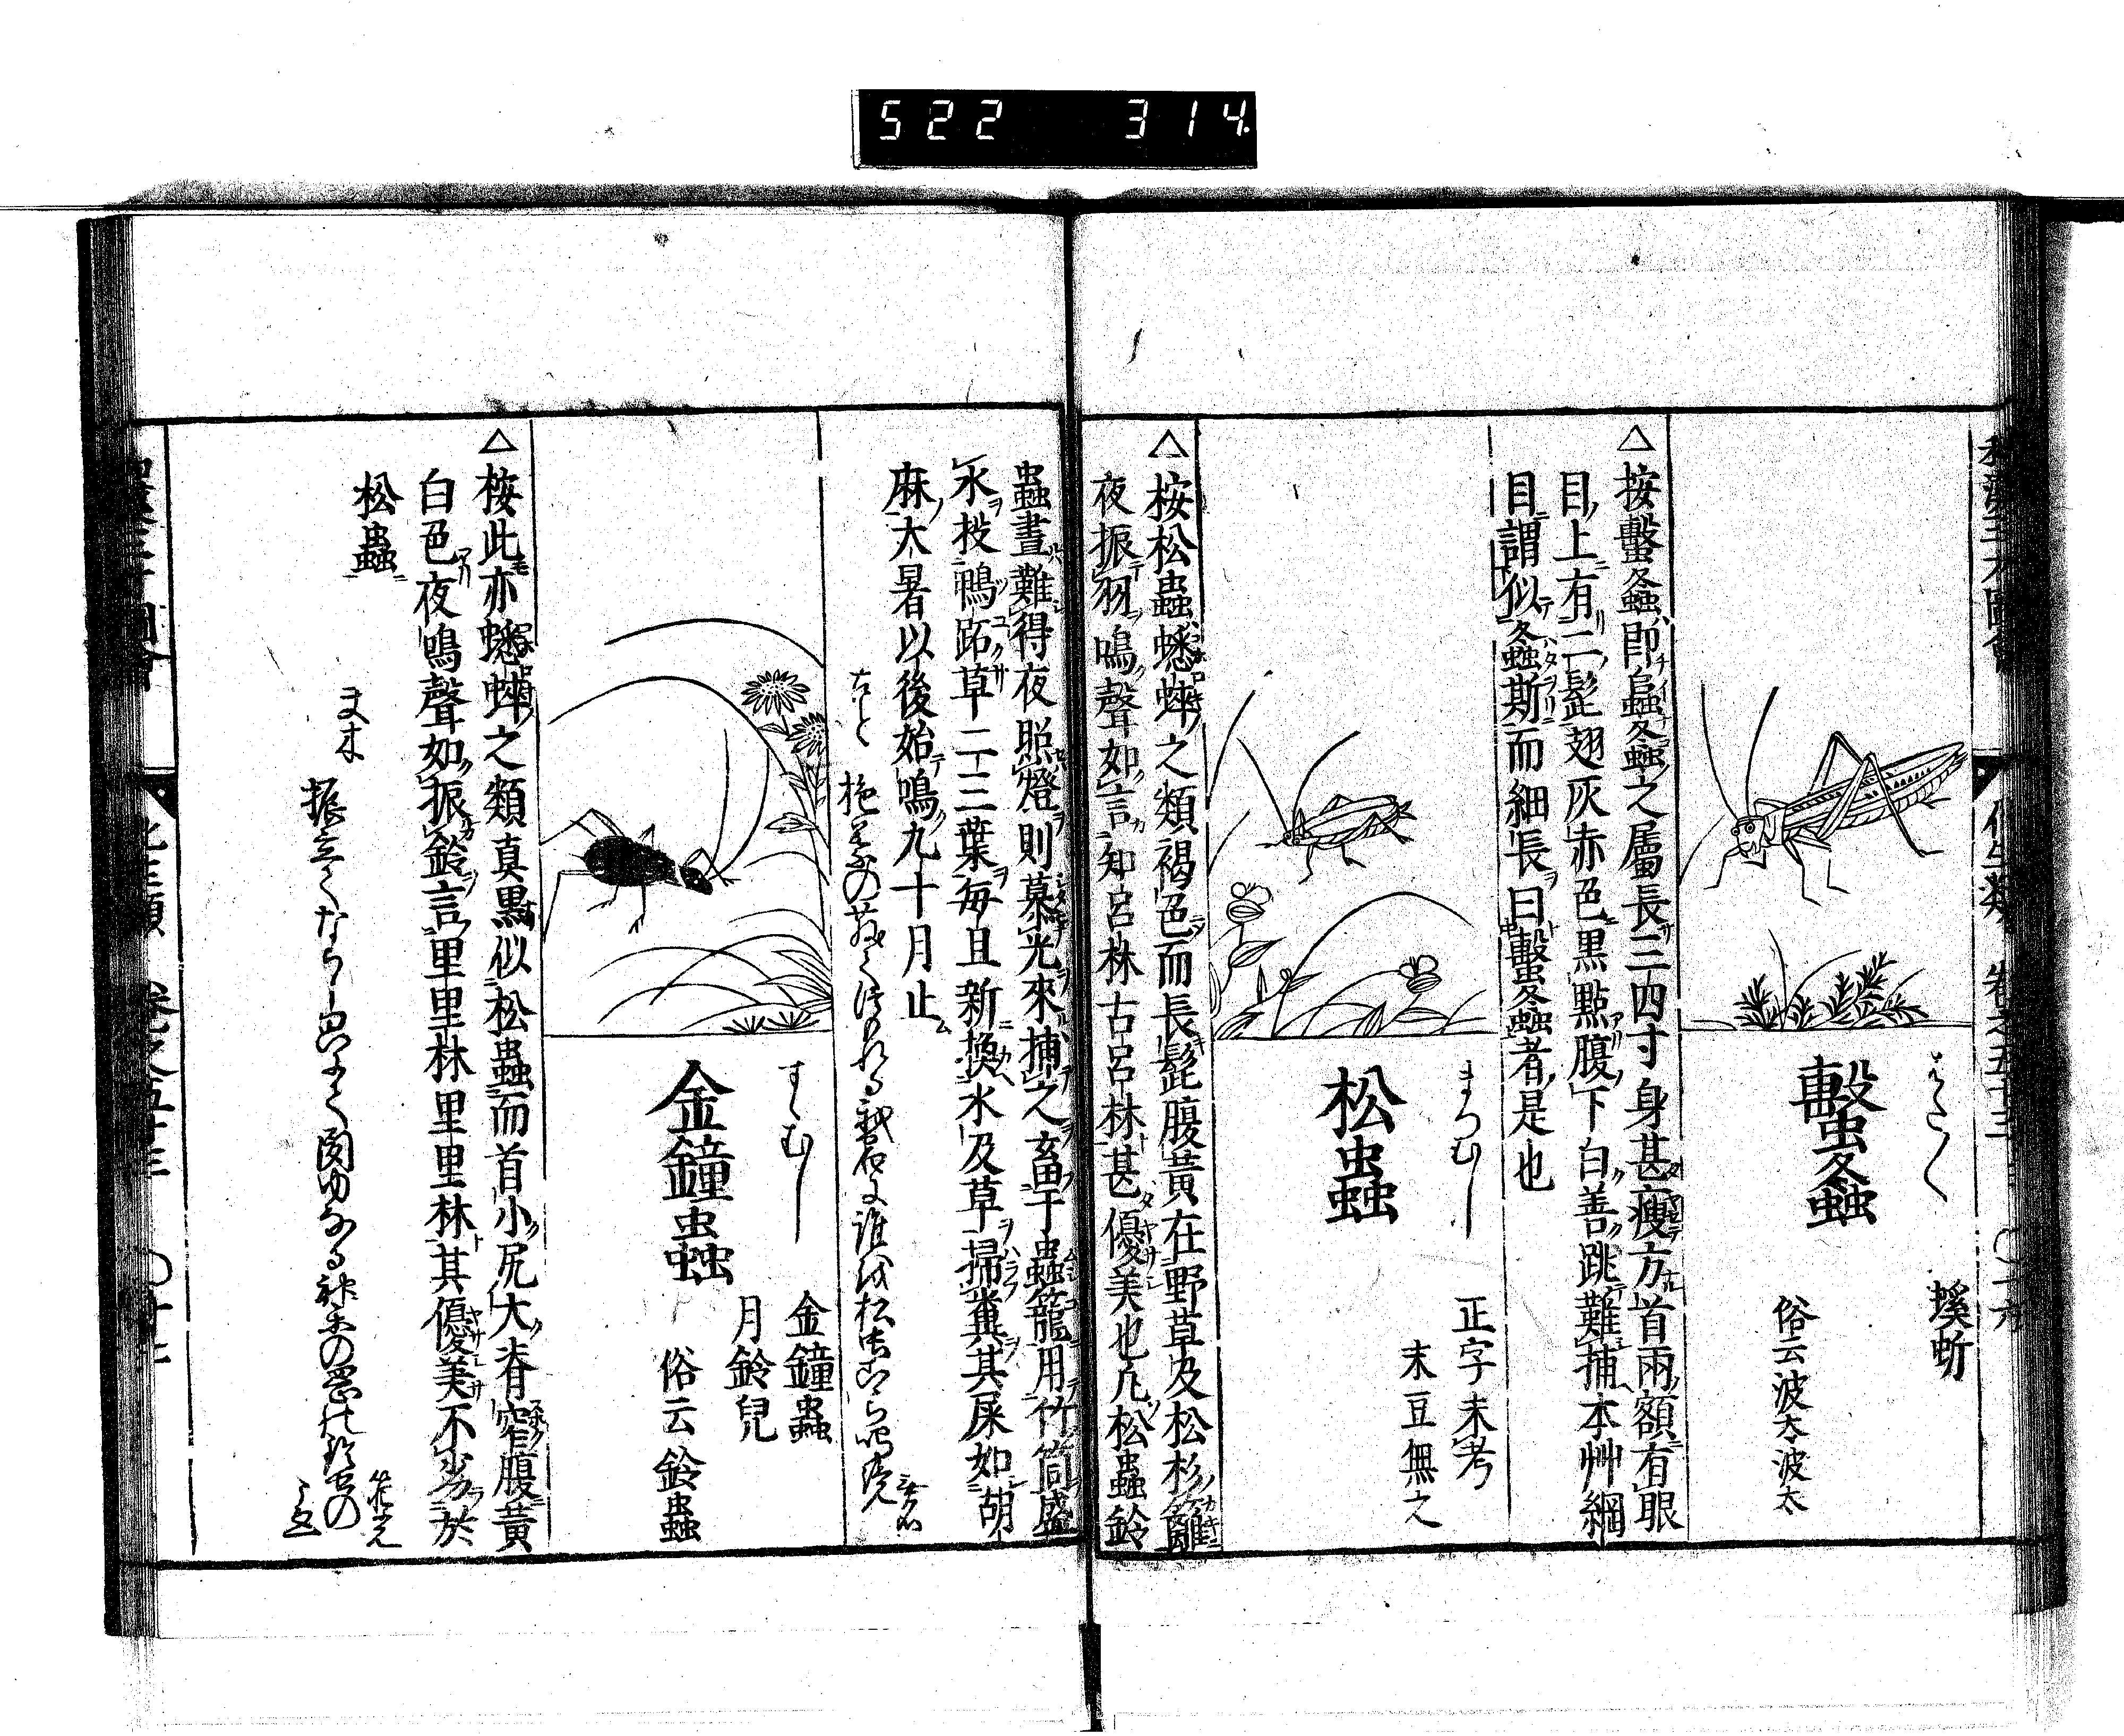 522 314.
和漢三才圖會 化生類 卷之五十三 〇十六
はたはた
蟿螽
螇蚸
俗云波太波太
△按蟿螽即𧒂螽之屬長三四寸身甚瘦方首兩額有眼
目上有二髭翅灰赤色黒點腹下白善跳難捕本艸綱
目謂似螽斯而細長曰蟿螽者是也
まつむし
松蟲
正字未考
末豆無之
△按松蟲蟋蟀之類褐色而長髭腹黃在野草及松杉籬
夜振羽鳴聲如言知呂林古呂林甚優美也凡松蟲鈴
蟲晝難得夜照燈則慕光來捕之畜于蟲籠用竹筒盛
水投鴨跖草二三葉每且新換水及草掃糞其屎如胡
麻大暑以後始鳴九十月止
すゝむし
金鐘蟲
金鐘蟲
月鈴兒
俗云鈴蟲
△按此亦蟋蟀之類真黒似松蟲而首小尻大脊窄腹黃
白色夜鳴聲如振鈴言里里林里里林其優美不劣於
松蟲